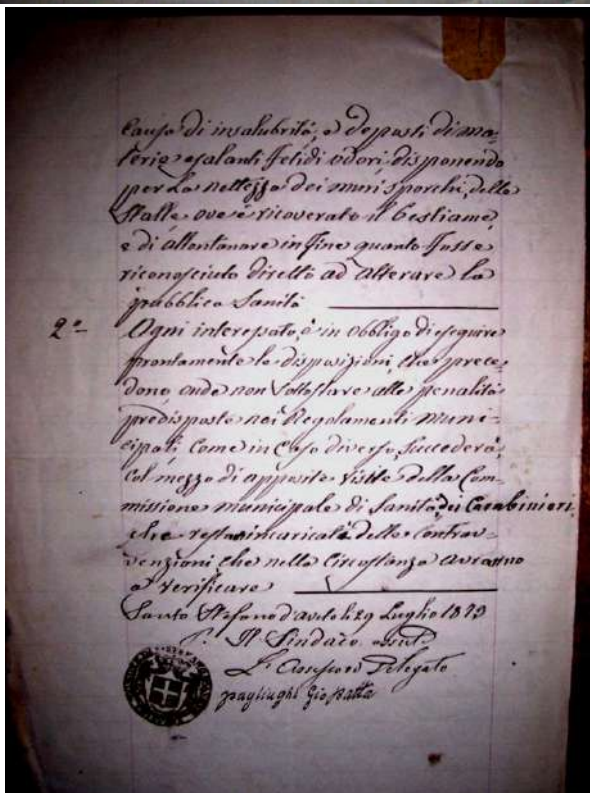 causa di insalubrità, e depositi di ma=
terie esalanti fetidi odori, disponendo
per la nettezza dei muri sporchi, delle
Stalle ove è ricoverato il bestiame,
e di allontanare in fine quanto fosse
riconosciuto diretto ad alterare la
pubblica Sanità
2º= Ogni interessato, è in obbligo di eseguire
prontamente le disposizioni, che prece=
dono onde non Sottostare alle penalità
predisposte nei Regolamenti Muni=
cipali, come in Caso diverso Succederà,
Col mezzo di apposite visite della Com=
missione municipale di Sanità, dei Carabinieri
che resta incaricata delle Contrav=
venzioni che nella Circostanza avranno
a verificare
Santo Stefano d'Aveto li 29 Luglio 1873
Il Sindaco
L'Assessore Delegato
Pagliughi Gio Batta